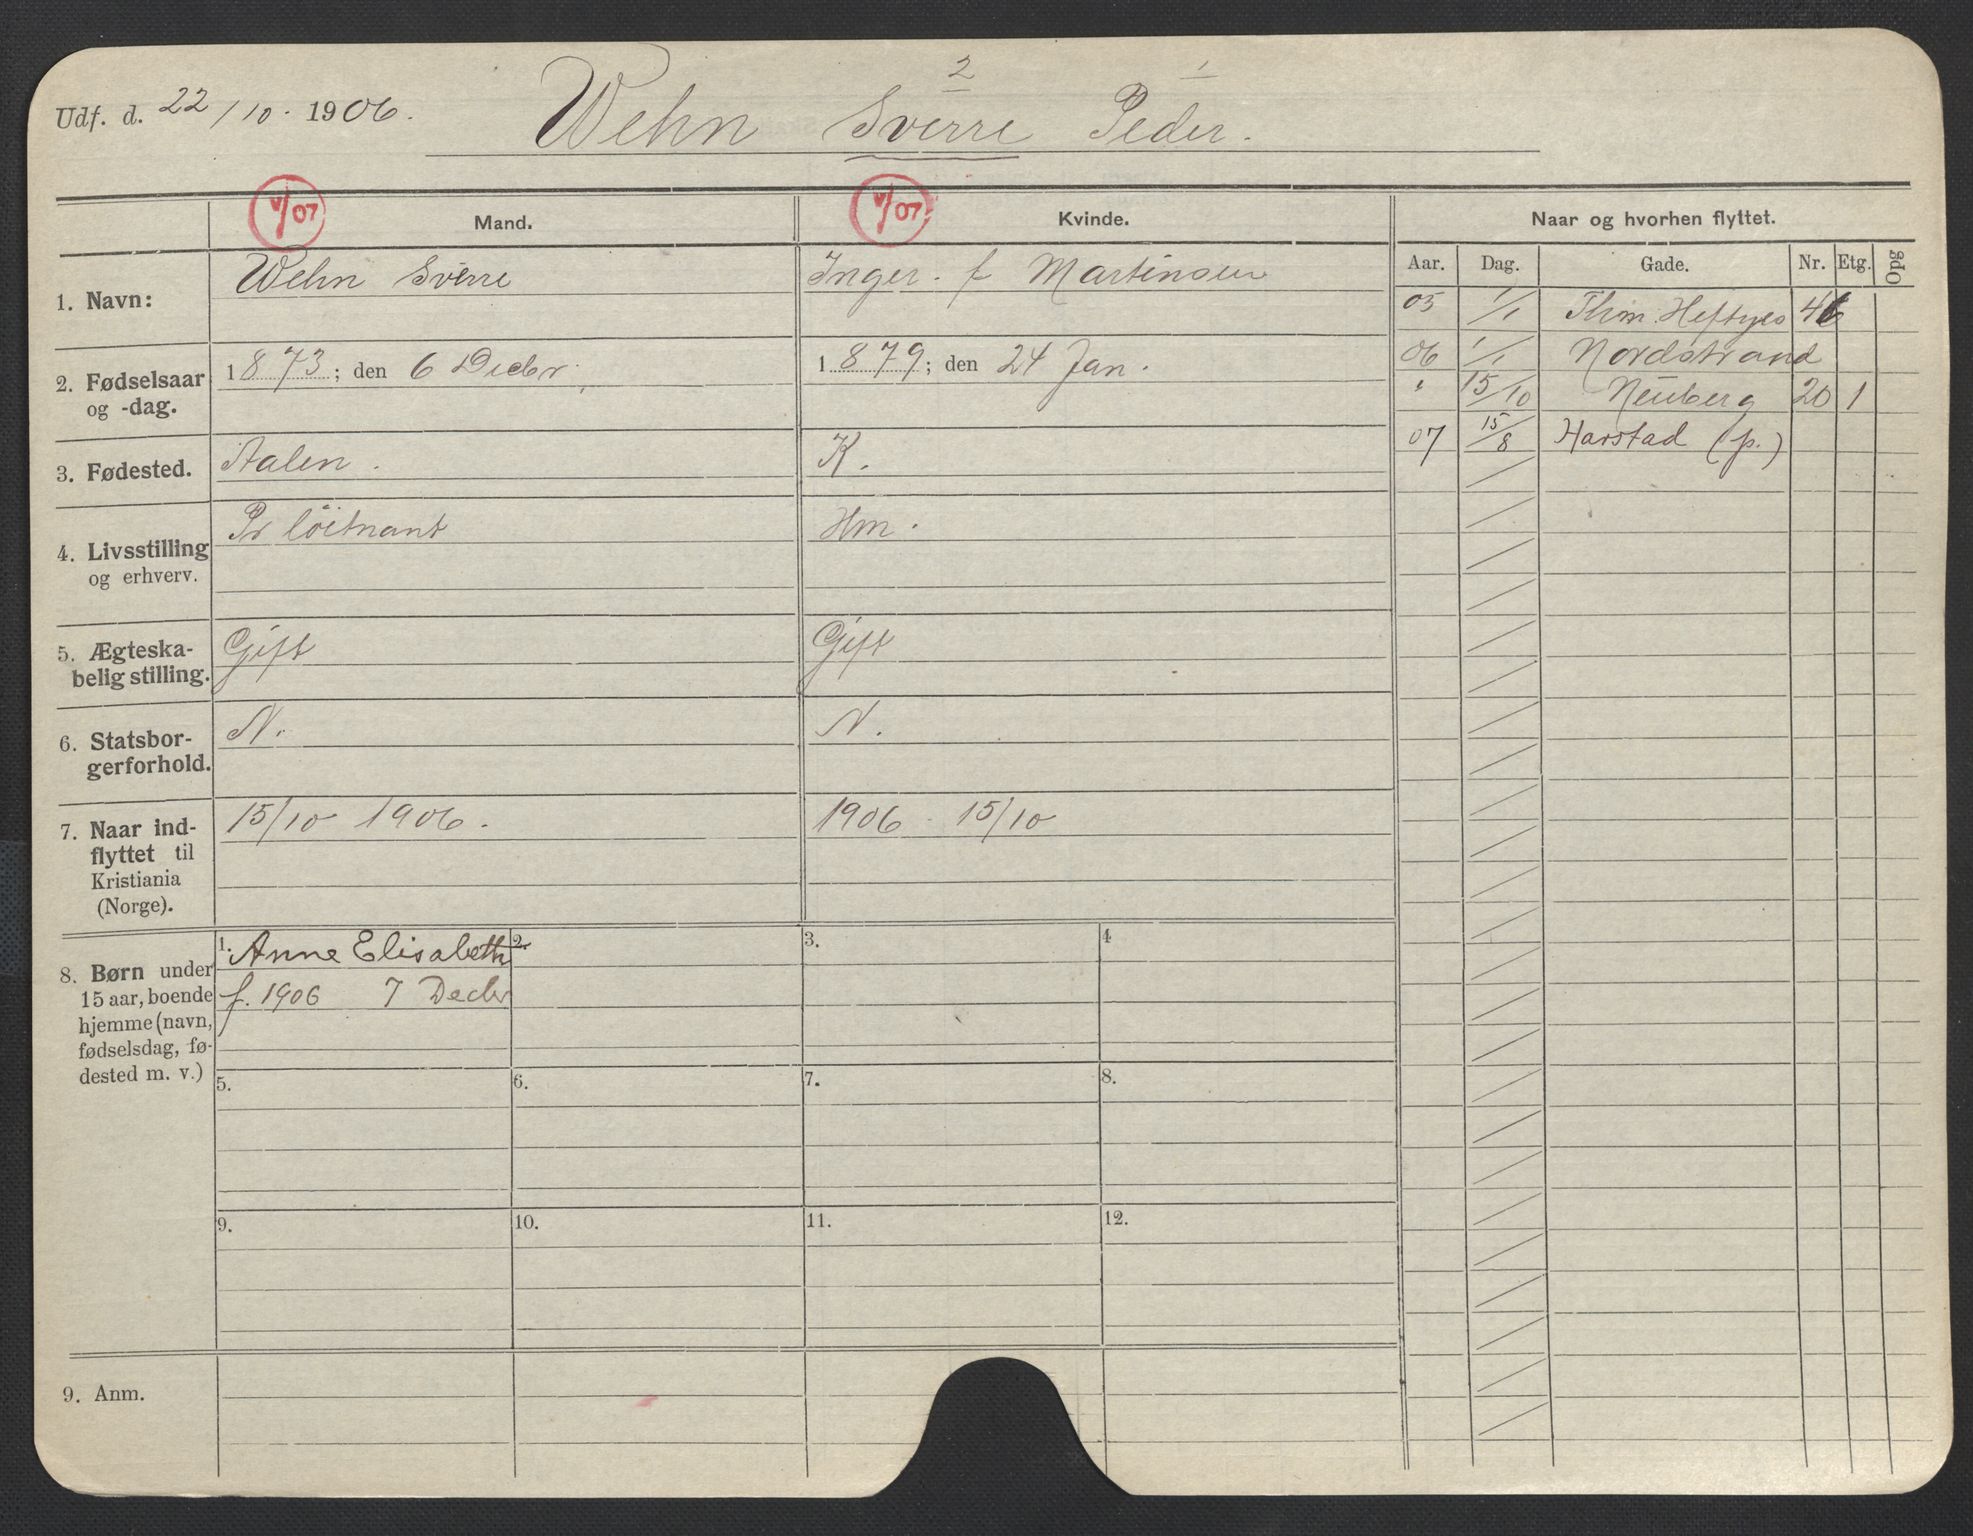 2 1
Udf. d. 22/10. 1906. Wehn Sverre Peder.
V/07 Mand. V/07 Kvinde. Naar og hvorhen flyttet.
Aar. Dag. Gade. Nr. Etg. Opg
1. Navn: Wehn Sverre Inger. f Martinsen
05 1/1 Thom. Heftyes 46
2. Fødselsaar og -dag. 1873; den 6 Decbr. 1879; den 24 Jan.
06 1/1 Nordstrand
" 15/10 Neuberg 20 1
3. Fødested. Aalen. K.
07 15/8 Harstad (p.)
4. Livsstilling og erhverv. Pr löitnant Hm.
5. Ægteska-
belig stilling. Gift Gift
6. Statsbor-
gerforhold. N. N.
7. Naar ind-
flyttet til
Kristiania
(Norge). 15/10 1906. 1906 15/10
8. Børn under
15 aar, boende
hjemme (navn,
fødselsdag, fø-
dested m. v.)
1. Anne Elisabeth
f. 1906 7 Decbr
2. 3. 4
5. 6. 7. 8.
9. 10. 11. 12.
9. Anm.